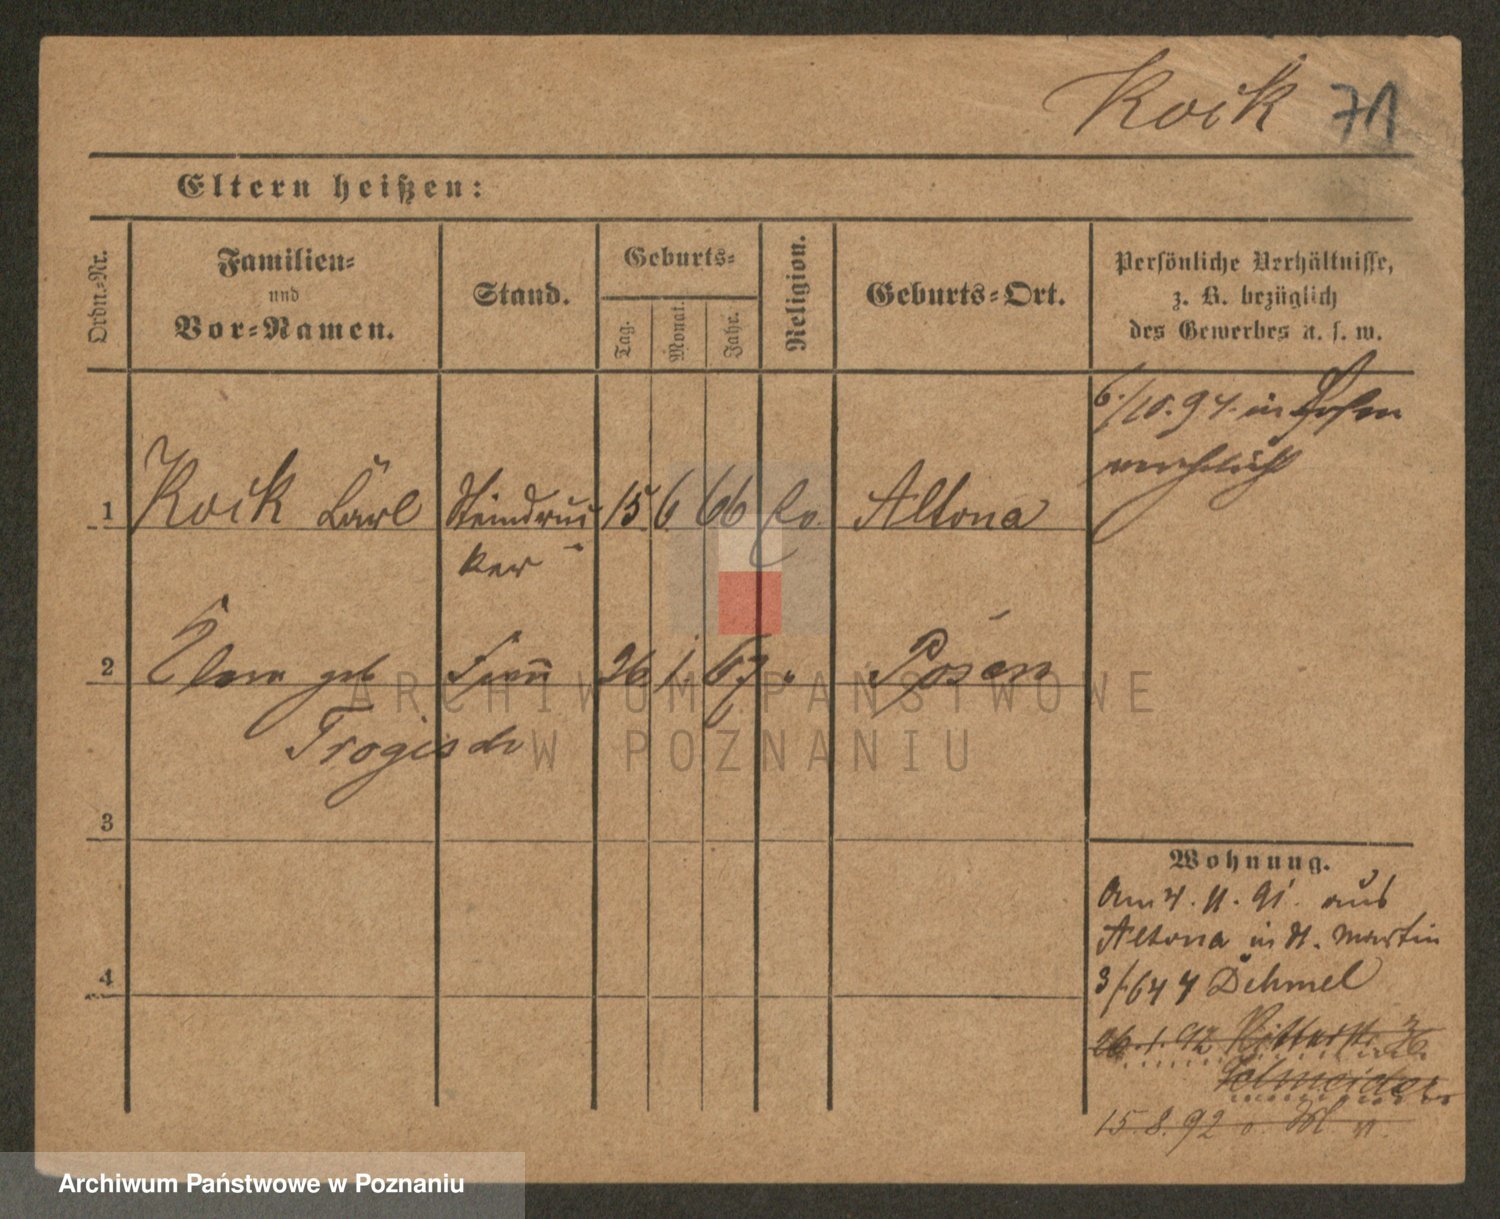 Koik 71
Eltern heißen:
Ordn.-Nr.
Familien-
und
Vor-Namen.
Stand.
Geburts-
Tag.
Monat.
Jahr.
Religion.
Geburts-Ort.
Persönliche Verhältnisse,
z. B. bezüglich
des Gewerbes u. s. w.
6./10. 94. in Posen
1 Koik Carl Steindruc 15 6 66 Ev. Altona
ker
2 geb Frau 26 1. 67 " Posen
Trogisch
3
4
Wohnung.
Am 4. 11. 91. aus
Altona in St. Martin
3/644 Dehmel
26. 1. 92 Ritterstr. 36
Schneider
15. 8. 92
ARCHIWUM PAŃSTWOWE
W POZNANIU
Archiwum Państwowe w Poznaniu